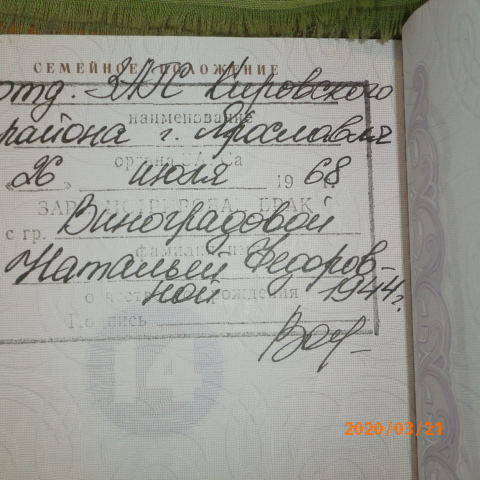 СЕМЕЙНОЕ ПОЛОЖЕНИЕ
отд. ЗАГС Кировского
наименование
района г. Ярославля
органа ЗАГСа
"26" июля 1968 г.
ЗАРЕГИСТРИРОВАН БРАК
с гр. Виноградовой
фамилия, имя
Натальей Федоров-
ной 1944 г.
отчество рождения
Подпись
14
2020/03/21